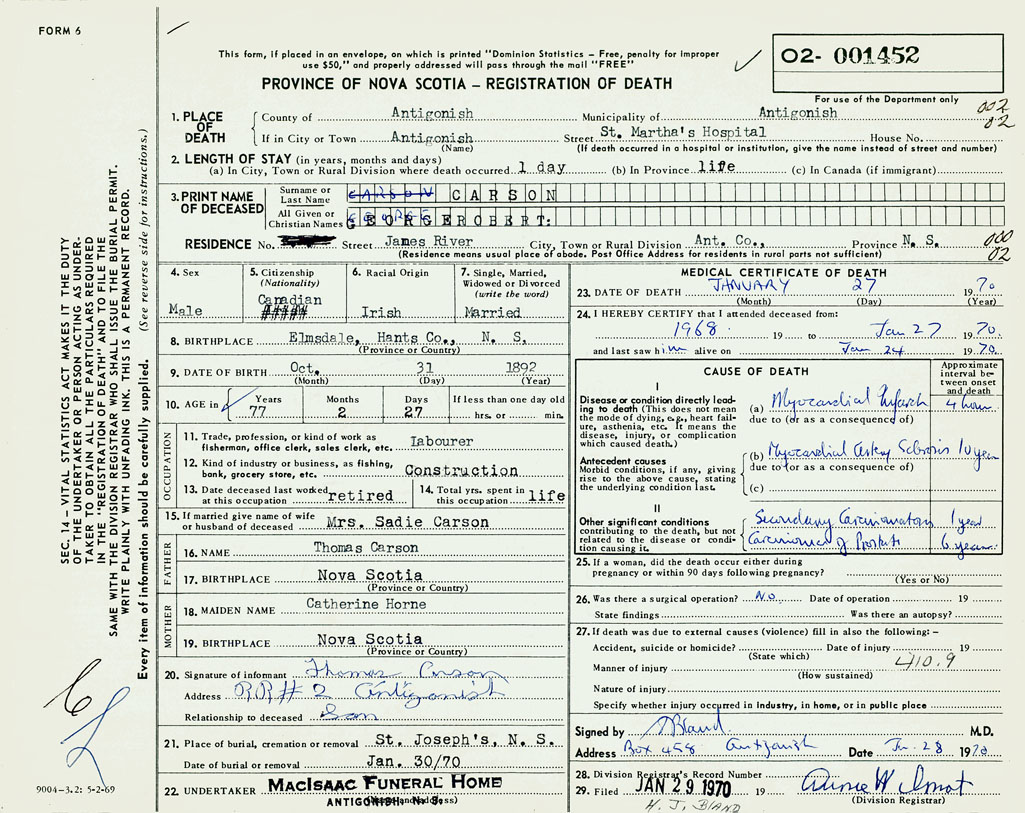 FORM 6
This form, if placed in an envelope, on which is printed "Dominion Statistics – Free, penalty for improper
use $50," and properly addressed will pass through the mail "FREE"
02- 001452
PROVINCE OF NOVA SCOTIA – REGISTRATION OF DEATH
For use of the Department only
002
02
1. PLACE OF DEATH
County of Antigonish Municipality of Antigonish
If in City or Town Antigonish Street St. Martha's Hospital House No.
(Name) (If death occurred in a hospital or institution, give the name instead of street and number)
2. LENGTH OF STAY (in years, months and days)
(a) In City, Town or Rural Division where death occurred 1 day (b) In Province life (c) In Canada (if immigrant)
3. PRINT NAME OF DECEASED
Surname or Last Name CARSON CARSON
All Given or Christian Names GEORGE ROBERT:
RESIDENCE No. Street James River City, Town or Rural Division Ant. Co., Province N. S.
000
02
(Residence means usual place of abode. Post Office Address for residents in rural parts not sufficient)
4. Sex
Male
5. Citizenship
(Nationality)
Canadian
6. Racial Origin
Irish
7. Single, Married,
Widowed or Divorced
(write the word)
Married
8. BIRTHPLACE Elmsdale, Hants Co., N. S.
(Province or Country)
9. DATE OF BIRTH Oct. 31 1892
(Month) (Day) (Year)
10. AGE in Years Months Days If less than one day old
77 2 27 hrs. or min.
OCCUPATION
11. Trade, profession, or kind of work as
fisherman, office clerk, sales clerk, etc. labourer
12. Kind of industry or business, as fishing,
bank, grocery store, etc. Construction
13. Date deceased last worked
at this occupation retired
14. Total yrs. spent in
this occupation life
15. If married give name of wife
or husband of deceased Mrs. Sadie Carson
FATHER
16. NAME Thomas Carson
17. BIRTHPLACE Nova Scotia
(Province or Country)
MOTHER
18. MAIDEN NAME Catherine Horne
19. BIRTHPLACE Nova Scotia
(Province or Country)
20. Signature of informant Thomas Carson
Address RR# 2 Antigonish
Relationship to deceased Son
21. Place of burial, cremation or removal St. Joseph's, N. S.
Date of burial or removal Jan. 30/70
22. UNDERTAKER MacIsaac Funeral Home
ANTIGONISH, N. S.
MEDICAL CERTIFICATE OF DEATH
23. DATE OF DEATH JANUARY 27 1970
(Month) (Day) (Year)
24. I HEREBY CERTIFY that I attended deceased from:
1968 19 to Jan 27 1970
and last saw him alive on Jan 24 1970
CAUSE OF DEATH
Approximate
interval be-
tween onset
and death
I
Disease or condition directly lead-
ing to death (This does not mean
the mode of dying, e.g., heart fail-
ure, asthenia, etc. It means the
disease, injury, or complication
which caused death.)
(a) Myocardial Infarct 4 hour
due to (or as a consequence of)
Antecedent causes
Morbid conditions, if any, giving
rise to the above cause, stating
the underlying condition last.
(b) Myocardial Artery Sclerosis 10 year
due to (or as a consequence of)
(c)
II
Other significant conditions
contributing to the death, but not
related to the disease or condi-
tion causing it.
Secondary Carcinomatosis 1 year
Carcinoma of Prostate 6 years
25. If a woman, did the death occur either during
pregnancy or within 90 days following pregnancy?
(Yes or No)
26. Was there a surgical operation? No Date of operation 19
State findings Was there an autopsy?
27. If death was due to external causes (violence) fill in also the following: –
Accident, suicide or homicide? Date of injury 19
(State which) 410.9
Manner of injury
(How sustained)
Nature of injury
Specify whether injury occurred in Industry, in home, or in public place
Signed by Bland M.D.
Address Box 458 Antigonish Date Jan 28 1970
28. Division Registrar's Record Number
29. Filed JAN 29 1970 19
(Division Registrar)
H. J. BLAND
SEC. 14 – VITAL STATISTICS ACT MAKES IT THE DUTY
OF THE UNDERTAKER OR PERSON ACTING AS UNDER-
TAKER TO OBTAIN ALL THE PARTICULARS REQUIRED
IN THE "REGISTRATION OF DEATH" AND TO FILE THE
SAME WITH THE DIVISION REGISTRAR WHO SHALL ISSUE THE BURIAL PERMIT.
WRITE PLAINLY WITH UNFADING INK. THIS IS A PERMANENT RECORD.
Every item of information should be carefully supplied. (See reverse side for instructions.)
9004-3.2: 5-2-69